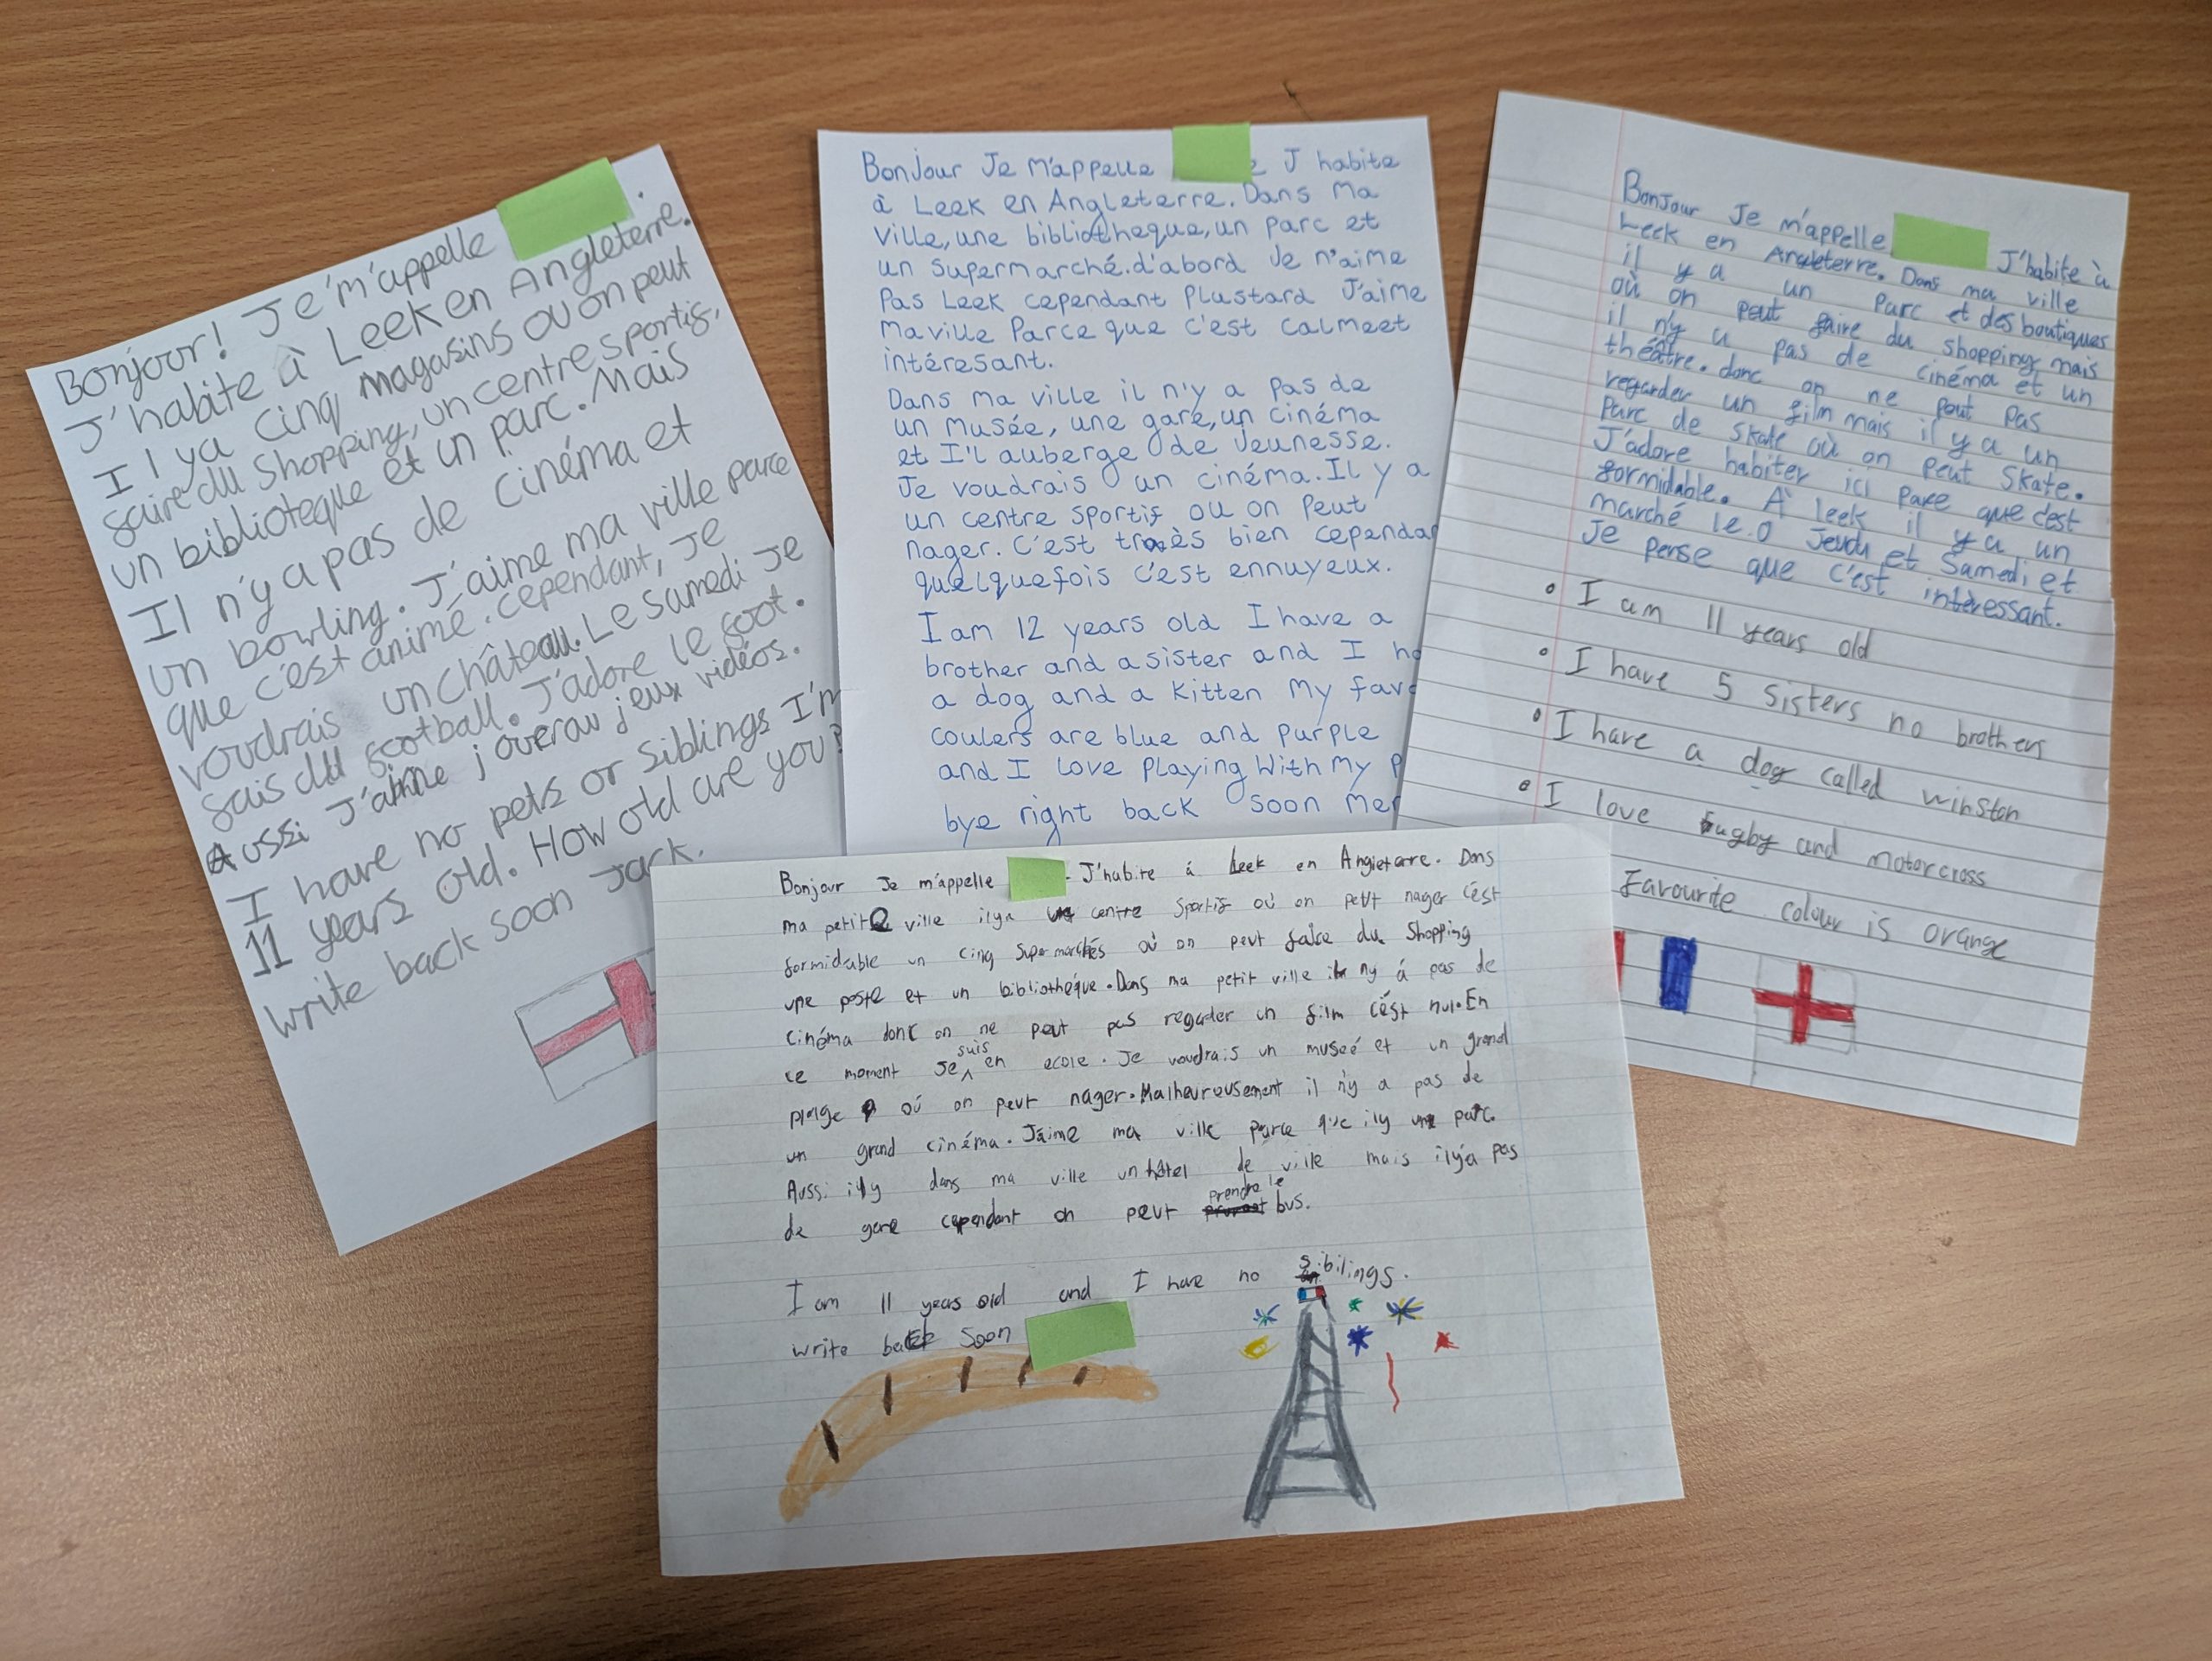 Bonjour! Je m'appelle
J'habite à Leek en Angleterre.
Il ya cinq magasins ou on peut
faire du Shopping, un centre sportif,
un biblioteque et un parc. Mais
Il n'y a pas de cinéma et
un bowling. J'aime ma ville parce
que c'est animé. cependant, Je
voudrais un château. Le samedi Je
fais du football. J'adore le foot.
Aussi J'aime j jeux vidéos.
I have no pets or Siblings I'm
11 years old. How old are you?
write back soon Jack.
Bonjour Je M'appelle J habite
à Leek en Angleterre. Dans Ma
ville, une bibliotheque, un parc et
un Supermarché. d'abord Je n'aime
Pas Leek cependant Plustard J'aime
Ma ville Parce que c'est calmeet
intéresant.
Dans ma ville il n'y a pas de
un musée, une gare, un cinéma
et I'l auberge de Jeunesse.
Je voudrais un cinéma. Il y a
un centre sportif ou on Peut
nager. C'est très bien cependa
quelquefois c'est ennuyeux.
I am 12 years old I have a
brother and a sister and I ha
a dog and a Kitten My favo
coulers are blue and purple
and I love Playing With My P
bye right back soon Mer
Bonjour Je m'appelle J'habite à
Leek en Angleterre. Dans ma ville
il y a un parc et des boutiques
où on peut faire du shopping mais
il n'y a pas de cinéma et un
théâtre. donc on ne peut pas
regarder un film mais il y a un
Parc de skate où on peut Skate.
J'adore habiter ici parce que c'est
formidable. À leek il y a un
marché le Jeudu et Samedi et
Je pense que c'est intèressant.
• I am 11 years old
• I have 5 sisters no brothers
• I have a dog called winston
• I love rugby and motorcross
Favourite colour is orange
Bonjour Je m'appelle . J'habite á Leek en Angleterre. Dans
ma petite ville ilya centre Sportif où on peut nager c'est
formidable un cinq supermarchés où on peut faire du Shopping
une poste et un bibliothéque. Dans ma petit ville il ny á pas de
cinéma donc on ne peut pas regader un film c'est nul. En
suis
ce moment Je en ecole. Je voudrais un museé et un grand
plage où on peut nager. Malheureusement il n'y a pas de
un grand cinéma. J'aime ma ville parce que ily un parc.
Aussi ily dans ma ville un hôtel de ville mais ily'a pas
prendre le
de gare cependant on peut bus.
I am 11 years old and I have no Sibilings.
write back soon